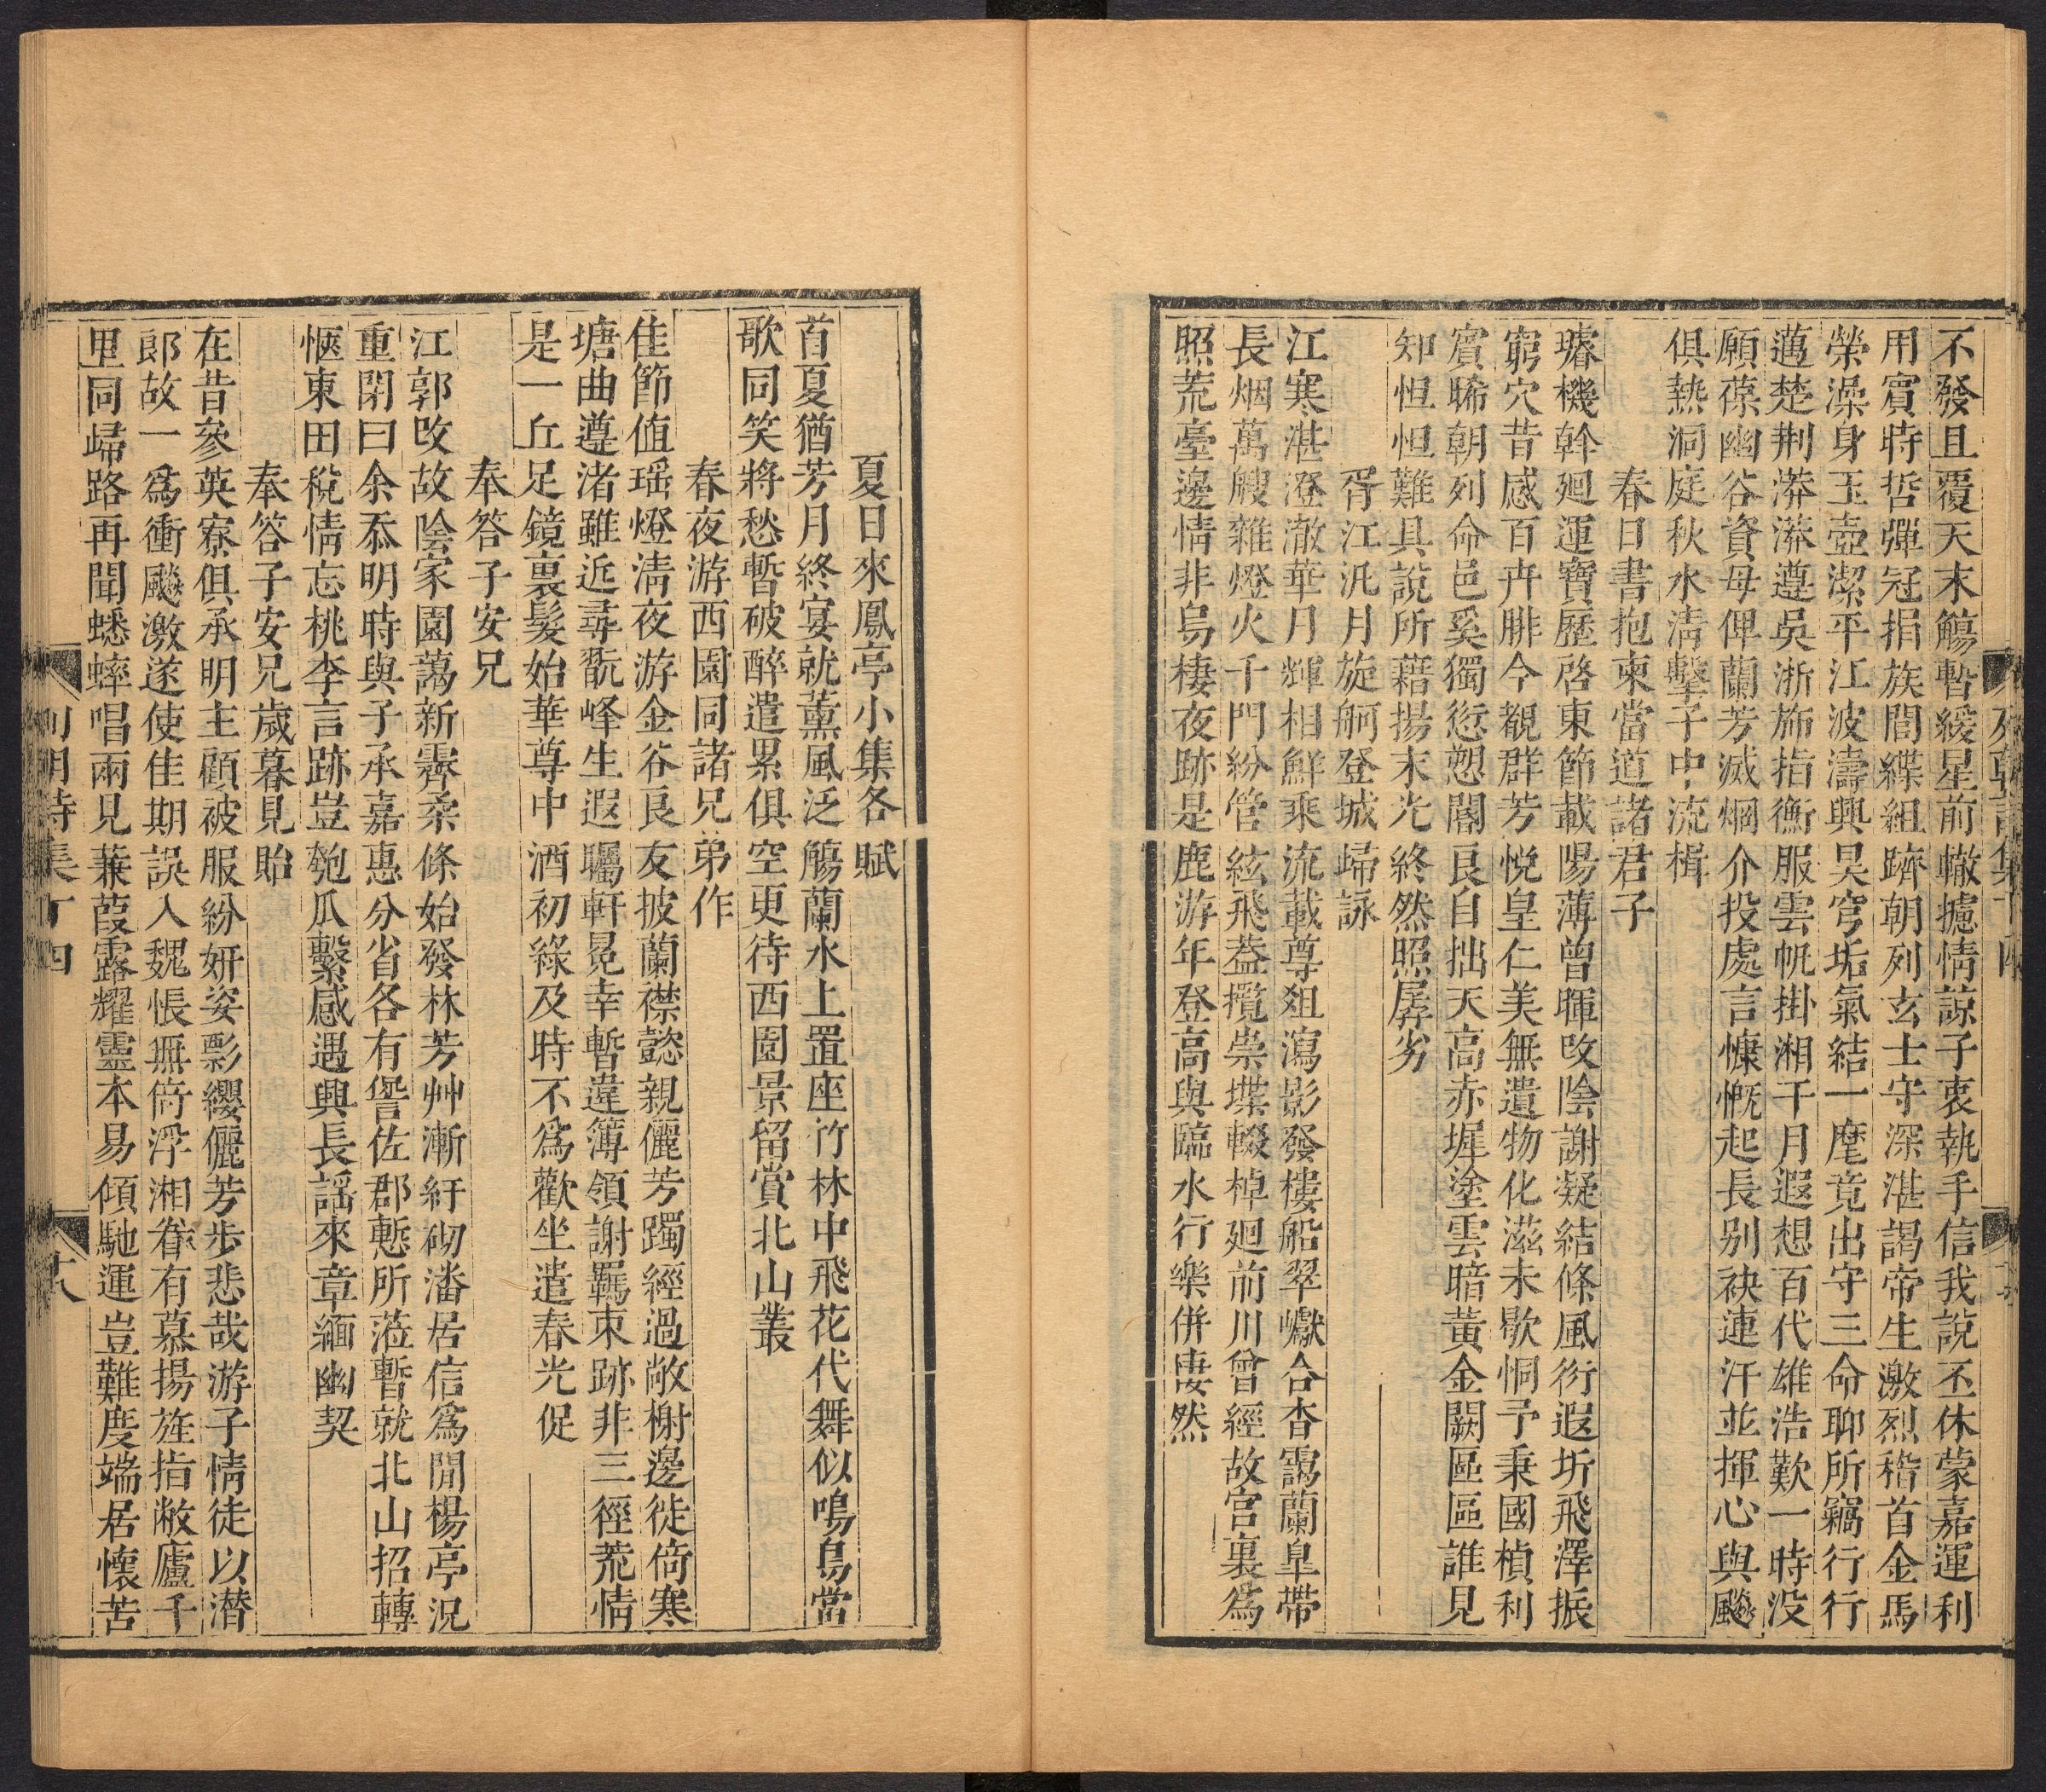 不發且覆天末觴暫緩星前轍攄情諒子衷執手信我說丕休蒙嘉運利
用賓時哲彈冠捐族閭緤組躋朝列玄士守深湛謁帝生激烈稽首金馬
榮澡身玉壺潔平江波濤興昊穹垢氣結一麾竟出守三命聊所竊行行
邁楚荆漭漭遵吳浙斾指衡服雲帆掛湘千月遐想百代雄浩歎一時没
願葆幽谷資毋俾蘭芳滅烟介投處言慷慨起長别袂連汗並揮心與飈
俱熱洞庭秋水清擊子中流楫
春日書抱柬當道諸君子
璿機斡廻運寶歷啓東節載陽薄曾暉改陰謝凝結條風衍遐圻飛澤振
窮穴昔感百卉腓今觀群芳悅皇仁美無遺物化滋未歇恫予秉國楨利
賓晞朝列命邑奚獨愆愬閽良自拙天高赤墀塗雲暗黃金闕區區誰見
知怛怛難具說所藉揚末光終然照孱劣
胥江汎月旋舸登城歸詠
江寒湛澄澈華月輝相鮮乘流載尊俎瀉影發樓船翠巘合杳靄蘭皐帶
長烟萬艘雜燈火千門紛管絃飛蓋攬崇堞輟棹廻前川曾經故宫裏爲
照荒臺邊情非烏棲夜跡是鹿游年登高與臨水行樂併悽然
夏日來鳳亭小集各賦
首夏猶芳月終宴就薰風泛觴蘭水上置座竹林中飛花代舞似鳴鳥當
歌同笑將愁暫破醉遣累俱空更待西園景留賞北山叢
春夜游西園同諸兄弟作
佳節值瑶燈清夜游金谷良友披蘭襟懿親儷芳躅經過敞榭邊徙倚寒
塘曲遵渚雖近尋翫峰生遐矚軒冕幸暫違簿領謝羈束跡非三徑荒情
是一丘足鏡裏髮始華尊中酒初綠及時不爲歡坐遣春光促
奉答子安兄
江郭改故陰家園藹新霽柔條始發林芳艸漸紆砌潘居信爲閒楊亭況
重閉曰余忝明時與子承嘉惠分省各有訾佐郡慙所蒞暫就北山招轉
愜東田稅情忘桃李言跡豈匏瓜繫感遇興長謡來章緬幽契
奉答子安兄歲暮見貽
在昔參英寮俱承明主顧被服紛妍姿影纓儷芳步悲哉游子情徒以潜
郎故一爲衝飈激遂使佳期誤入魏悵無倚浮湘眷有慕揚旌指敝廬千
里同歸路再聞蟋蟀唱兩見蒹葭露耀靈本易傾馳運豈難度端居懷苦
列朝詩集丁四
十八